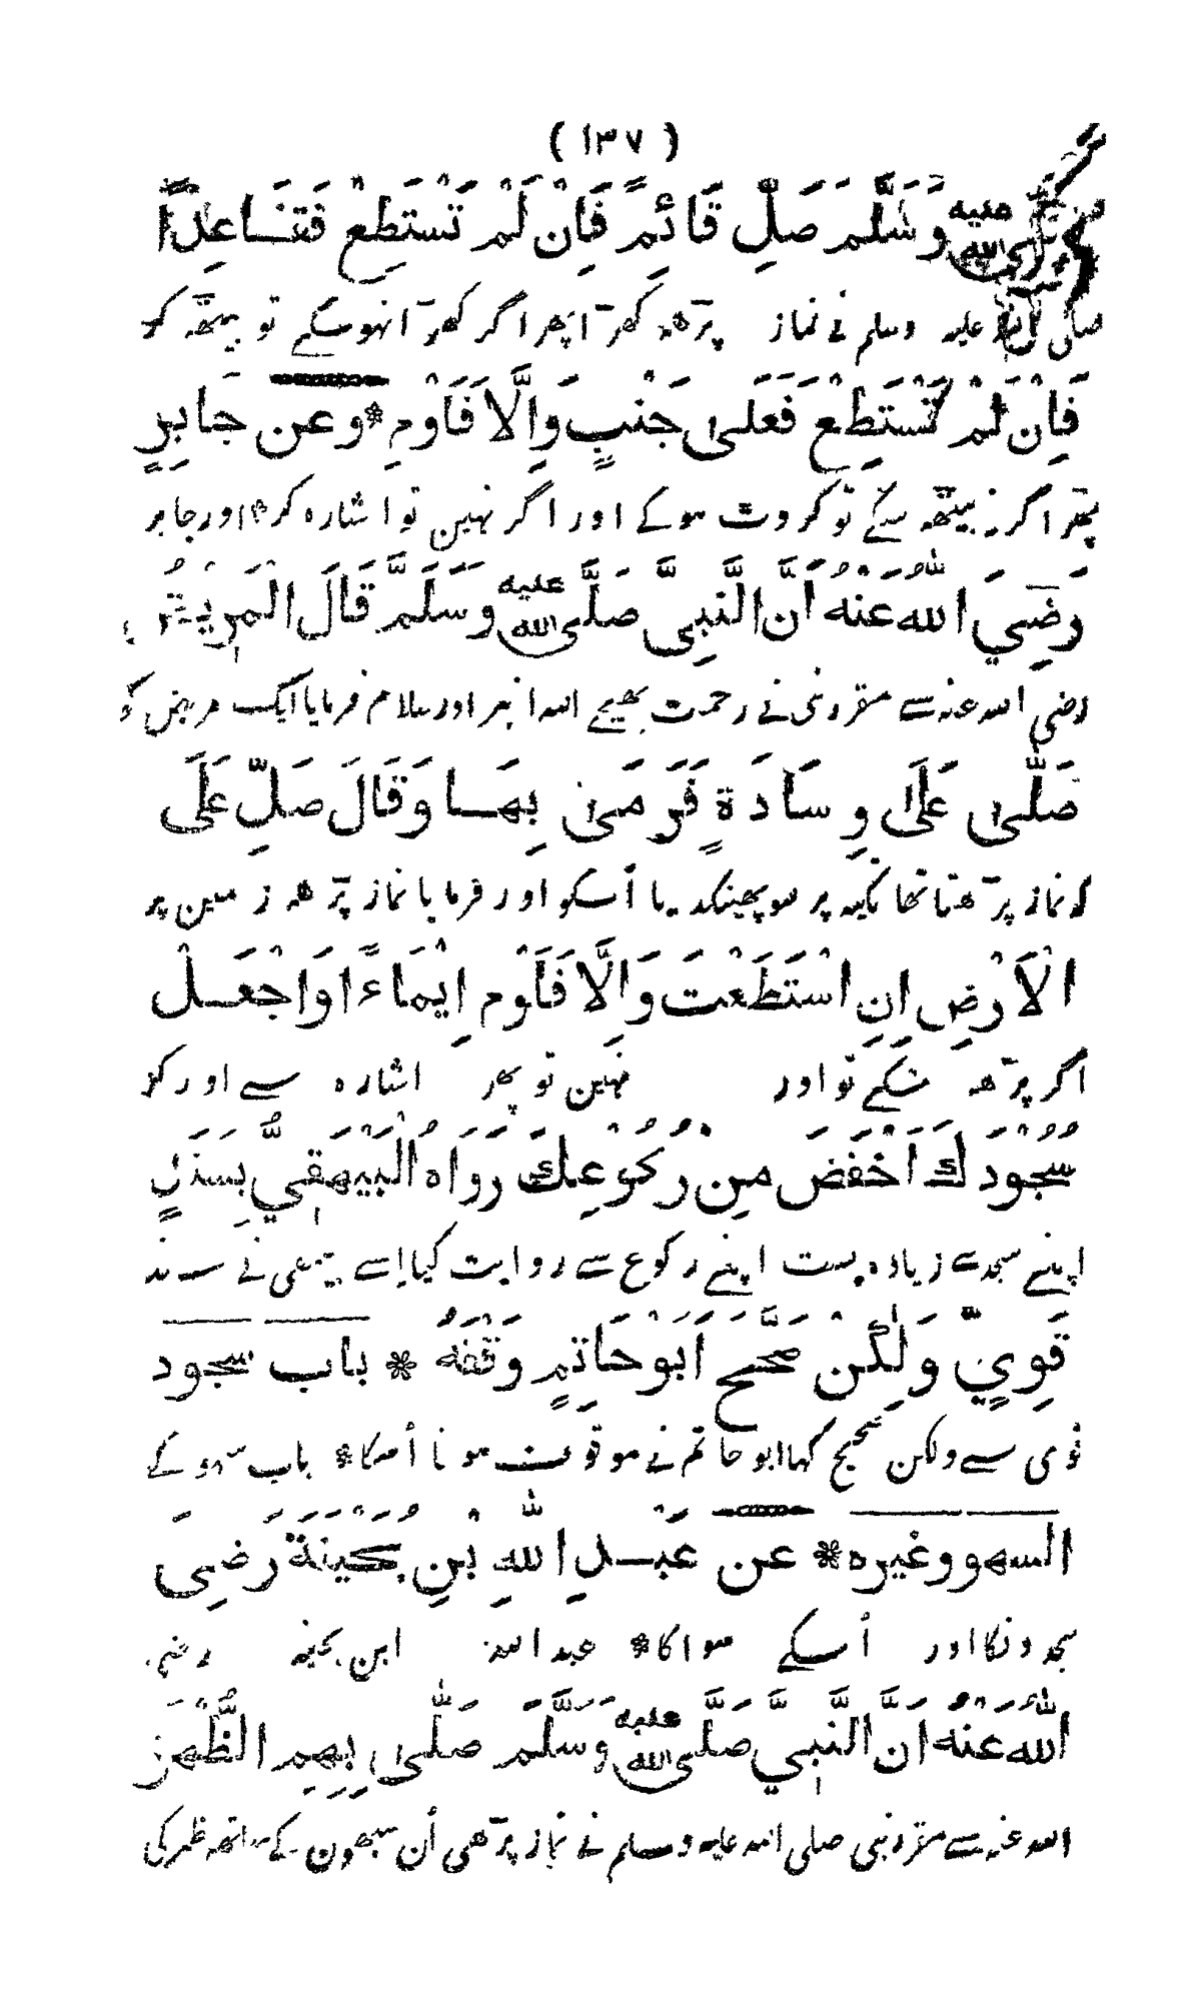 ( ١٣٧ )
صلى الله عليه وَسَلَّمَ صَلِّ قَائِمً فَاِنْ لَمْ تَسْتَطِعْ فَقَاعِدًا
صلی اللہ علیہ وسلم نے نماز پڑھ کھڑا پھر اگر کھڑا نہو سکے تو بیٹھہ کر
فَاِنْ لَمْ تَسْتَطِعْ فَعَلٰى جَنْبٍ وَاِلَّا فَاَوْمِ * وعن جَابِرٍ
پھر اگر نہ بیٹھہ سکے تو کروٹ ہو کے اور اگر نہین تو اشارہ کر * اور جابر
رَضِيَ اللهُ عَنْهُ اَنَّ النَّبِىَّ صَلَّى الله عليه وَسَلَّمَ قَالَ لِمَرِيْضٍ
رضی اللہ عنہ سے مقرر نبی نے رحمت بھیجے اللہ انپر اور سلام فرمایا ایک مریض کو
صَلّٰى عَلٰى وِسَادَةٍ فَرَمٰى بِهَا وَقَالَ صَلِّ عَلَى
کہ نماز پڑھتا تھا تکیہ پر سو پھینکدیا اُسکو اور فرمایا نماز پڑھ زمین پر
الْاَرْضِ اِنِ اسْتَطَعْتَ وَاِلَّا فَاَوْمِ اِيْمَاءً وَاجْعَلْ
اگر پڑھ سکے تو اور نہین تو پھر اشارہ سے اور کر
سُجُوْدَكَ اَخْفَضَ مِنْ رُكُوْعِكَ رَوَاهُ الْبَيْهَقِيُّ بِسَنَدٍ
اپنے سجدے زیادہ پست اپنے رکوع سے روایت کیا اِسے بیہقی نے سند
قَوِيٍّ وَلٰكِنْ صَحَّحَ اَبُوْ حَاتِمٍ وَقْفَهُ * باب سجود
قوی سے ولکن صحیح کہا ابو حاتم نے موقوف ہونا اُسکا * باب سہو کے
السهو وغيره * عن عَبْدِ اللهِ بْنِ بُحَيْنَةَ رَضِىَ
سجدونکا اور اُسکے سوا کا * عبد اللہ ابن بحینہ رضی
اللهُ عَنْهُ اَنَّ النَّبِيَّ صَلَّى الله عليه وَسَلَّمَ صَلّٰى بِهِمُ الظُّهْرَ
اللہ عنہ سے مقرر نبی صلی اللہ علیہ وسلم نے نماز پڑھی اُن سبھون کے ساتھہ ظہر کی